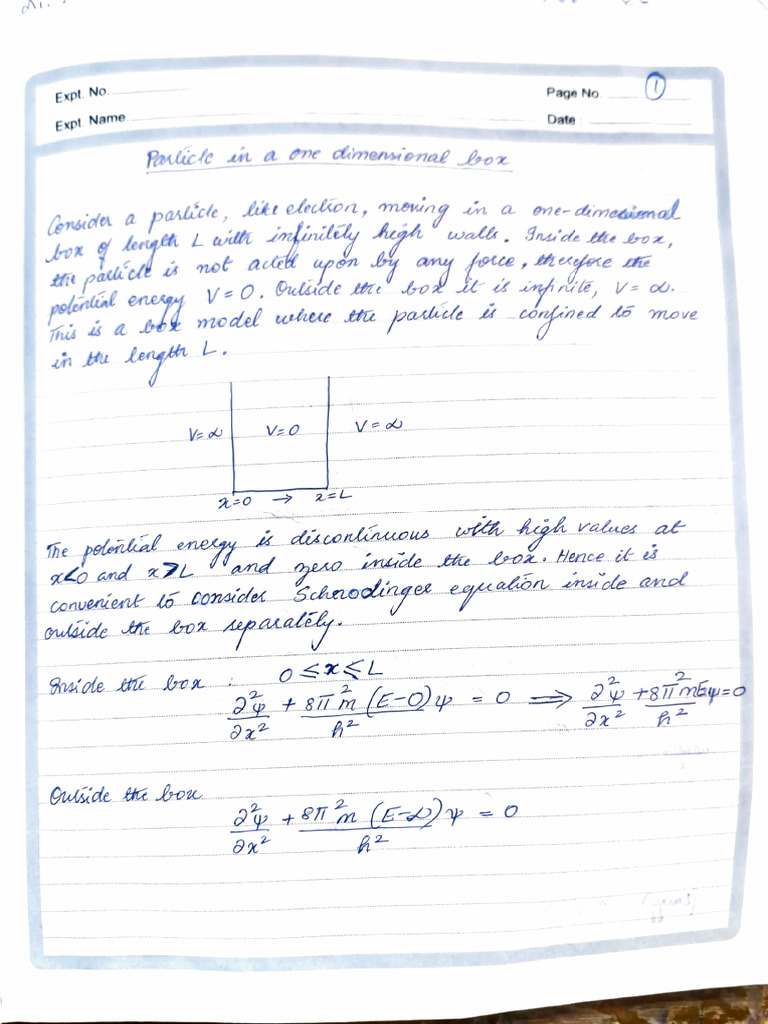 Expt. No.
Page No. 1
Expt. Name
Date :
Particle in a one dimensional box
Consider a particle, like election, moving in a one-dimensional
box of length L with infinitely high walls. Inside the box,
the particle is not acted upon by any force, therefore the
potential energy V=0. Outside the box it is infinite, V=∞.
This is a box model where the particle is confined to move
in the length L.
V=∞ V=0 V=∞
x=0 → x=L
The potential energy is discontinuous with high values at
x<0 and x>L and zero inside the box. Hence it is
convenient to consider Schrodinger equation inside and
outside the box separately.
Inside the box : 0≤x≤L
∂²ψ/∂x² + 8π²m/h² (E-0)ψ = 0 ⟹ ∂²ψ/∂x² + 8π²m/h² Eψ=0
Outside the box
∂²ψ/∂x² + 8π²m/h² (E-∞)ψ = 0